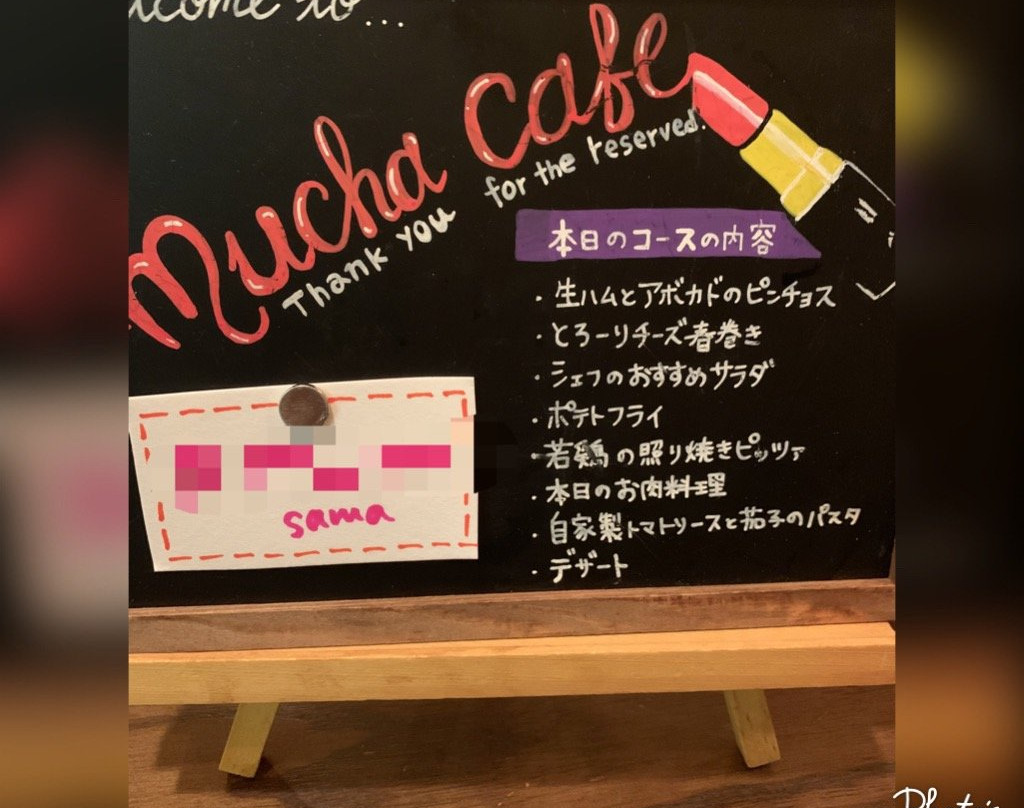 lcome to...
Mucha Cafe
Thank you for the reserved!
本日のコースの内容
・生ハムとアボカドのピンチョス
・とろーりチーズ春巻き
・シェフのおすすめサラダ
・ポテトフライ
・若鶏の照り焼きピッツァ
・本日のお肉料理
・自家製トマトソースと茄子のパスタ
・デザート
sama